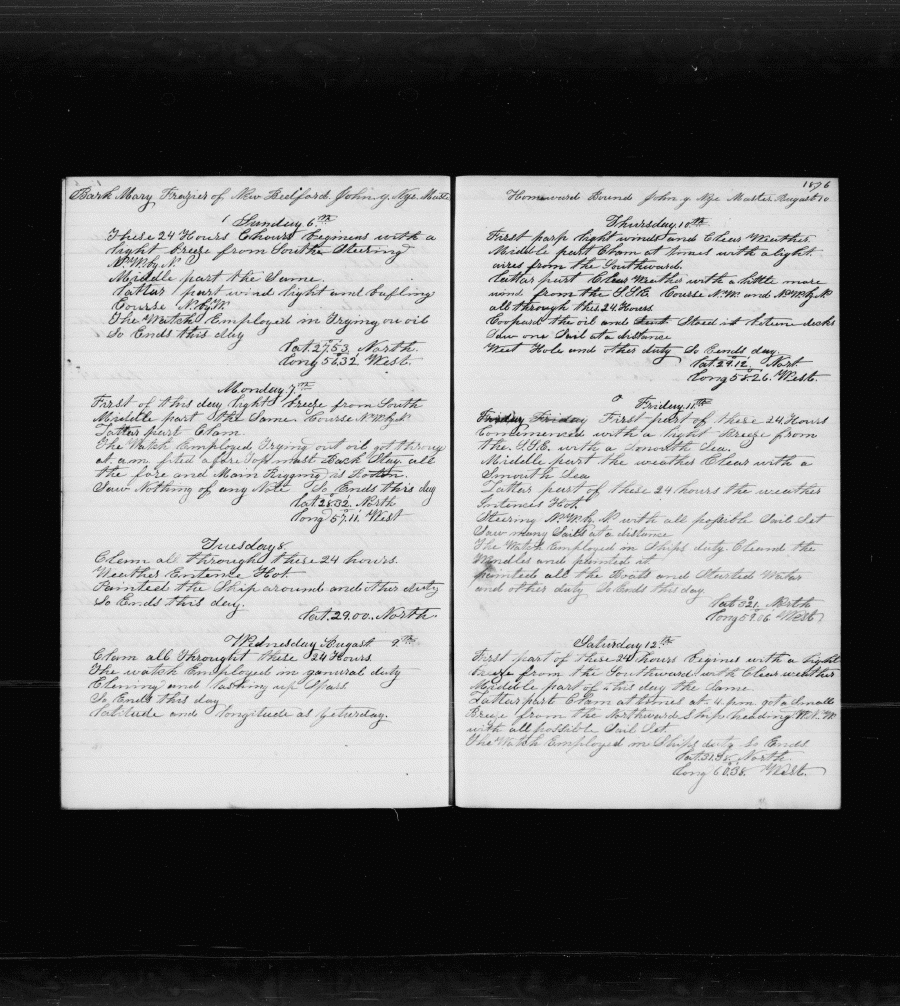 Bark Mary Frazier of New Bedford John g. Nye. Master
Sunday 6th
These 24 Hours Chours begmens with a
light breze from South Steering
NWbyN
Middle part the Same
Lattar part wind light and bufling
Course N.byW
The Watch Employed in Trying ou oil
So Ends this day
Lat. 27.53. North.
Long 56.32 West.
Monday 7th
First of this day light breze from South
Middle part the Same. Course NWbyN
Lattar part Clam
The Watch Employed Trying out oil got throug
at. a.m. fited a fore Top mast Back Stay all
the fore and Main Rigging is
Saw Nothing of any Note So Ends this day
Lat 28.32. North
Long 57.11. West
Tuesday 8
Clam al throught these 24 hours.
Weather Entence Hot.
Painted the Ship around and other duty
So Ends this day.
Lat. 29.00. North
Wednesday August 9th
Clam all throught these 24 Hours.
The watch Employed in ganural duty
Clening and lashing up Spars
So Ends this day
Latitude and longitude as yeturday.
1876
Homeward Bound John g Nye Master August 10
Thursday 10th
First parp light winds and Clear Weather
Middle part Clam at times with a light
aires from the Southward.
Lattar part Clear Weather with a little more
wind from the S.Etly Course N.W. and NWbyN
all through this 24 Hours.
Coopard the oil and Stoed it betwne decks
Saw one Sail at a distance
West Hole and other duty So Eends day
Lat. 29.12. Nort.
Long 58.26. West.
Friday 11th
Friday Friday First part of these 24 Hours
Comemenced with a light Breeze from
the S.S.E. with a Smouth Sea.
Middle part the weather Clear with a
Smouth Sea
Lattar part of these 24 hours the weather
Intences Hot.
Steering NWbyN with all possible Sail Set
Saw many Sails at a distance
The Watch Employed in Ships duty. Cleand the
Windles and painted it
painted all the Boats and Started Watar
and other duty So Ends this day
Lat 30.21. North
Long 59.06 West
Saturday 12th
First part of these 24 hours begines with a light
breze from the Southward with Clear weather
Middle part of this day the Same.
Lattar part Clam at times at 4 p.m. got a small
Breze from the Northward. Ship heading W.N.W.
with all possible Sail Set.
The Watch Employed in Ships duty So Ends
Lat. 31.38. North
Long 60.38. West.